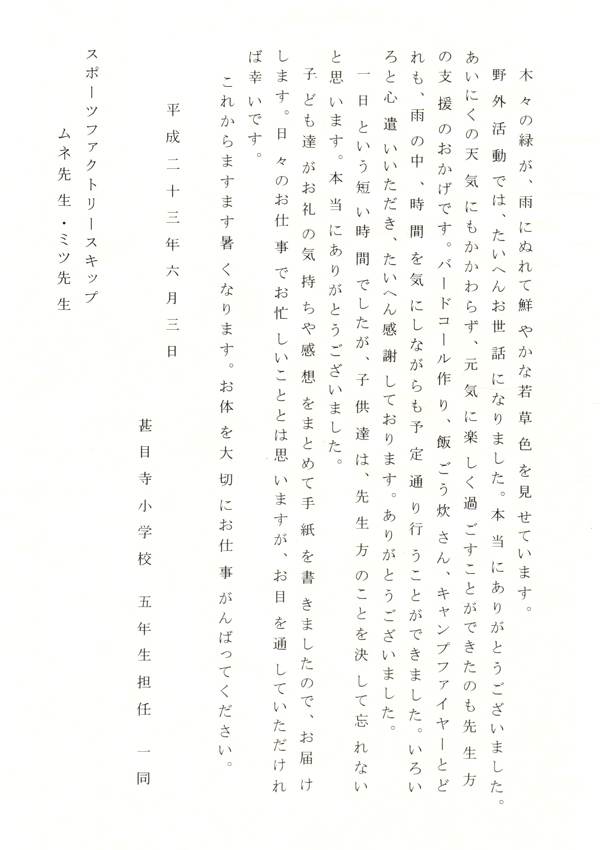 木々の緑が、雨にぬれて鮮やかな若草色を見せています。
野外活動では、たいへんお世話になりました。本当にありがとうございました。
あいにくの天気にもかかわらず、元気に楽しく過ごすことができたのも先生方
の支援のおかげです。バードコール作り、飯ごう炊さん、キャンプファイヤーとど
れも、雨の中、時間を気にしながらも予定通り行うことができました。いろい
ろと心遣いいただき、たいへん感謝しております。ありがとうございました。
一日という短い時間でしたが、子供達は、先生方のことを決して忘れない
と思います。本当にありがとうございました。
子ども達がお礼の気持ちや感想をまとめて手紙を書きましたので、お届け
します。日々のお仕事でお忙しいこととは思いますが、お目を通していただけれ
ば幸いです。
これからますます暑くなります。お体を大切にお仕事がんばってください。
平成二十三年六月三日
甚目寺小学校　五年生担任　一同
スポーツファクトリースキップ
ムネ先生・ミツ先生